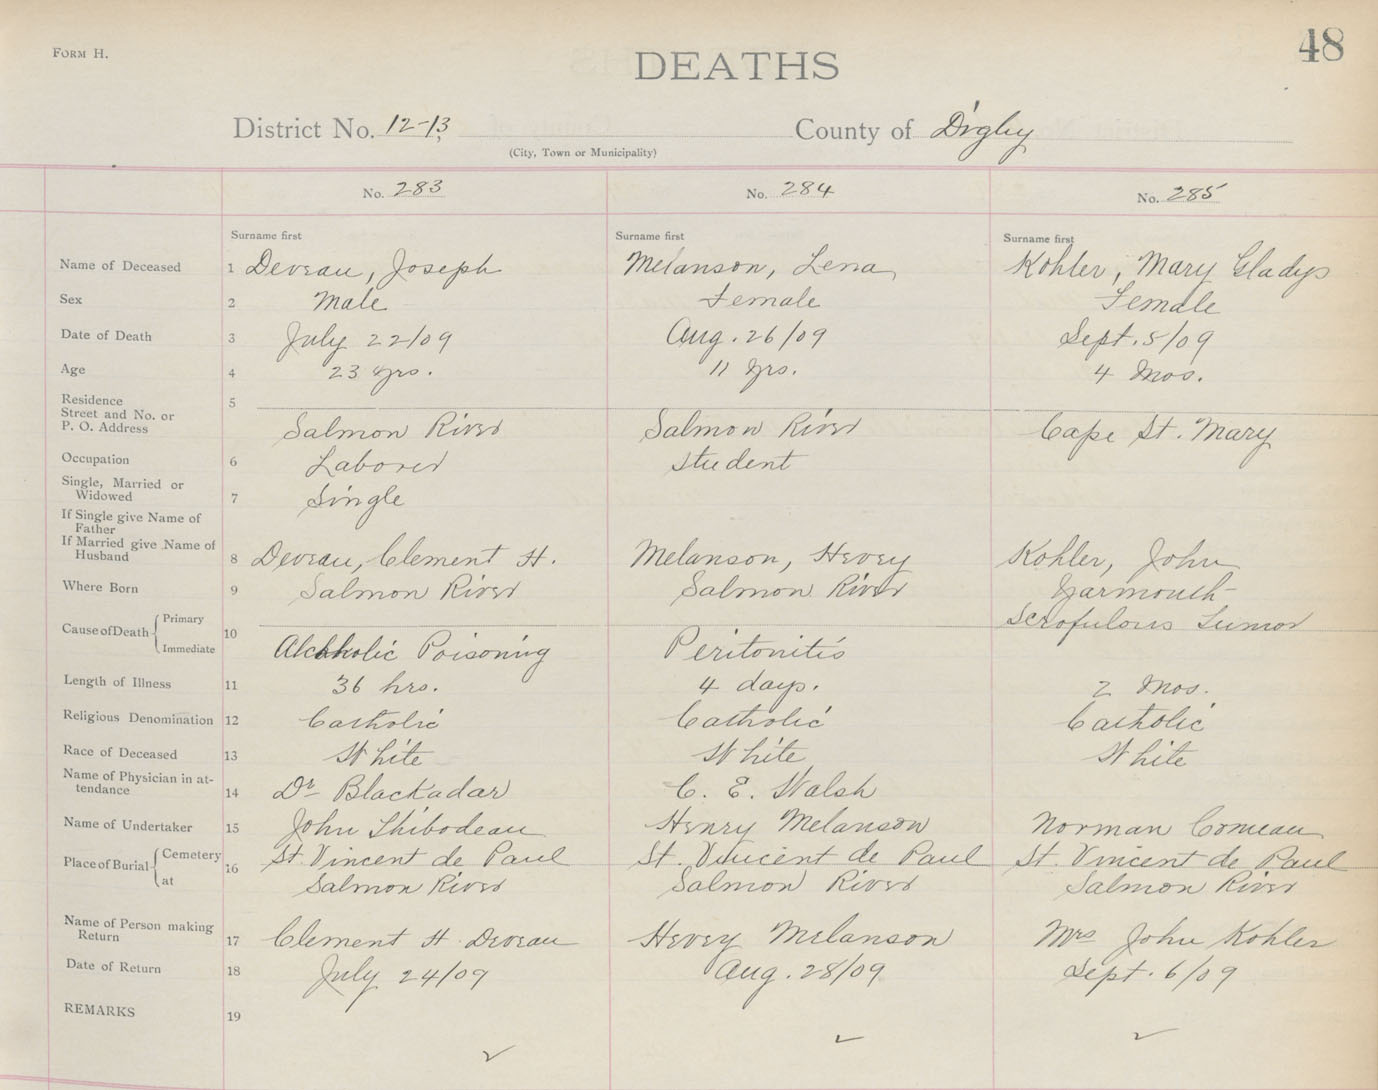 Form H.
DEATHS
48
District No. 12-13 County of Digby
(City, Town or Municipality)
No. 283 No. 284 No. 285
Surname first Surname first Surname first
Name of Deceased 1 Deveau, Joseph Melanson, Lena Kohler, Mary Gladys
Sex 2 Male Female Female
Date of Death 3 July 22/09 Aug. 26/09 Sept. 5/09
Age 4 23 yrs. 11 yrs. 4 Mos.
Residence 5
Street and No. or
P. O. Address Salmon River Salmon River Cape St. Mary
Occupation 6 Laborer Student
Single, Married or
Widowed 7 Single
If Single give Name of
Father
If Married give Name of
Husband 8 Deveau, Clement H. Melanson, Hevey Kohler, John
Where Born 9 Salmon River Salmon River Yarmouth
Cause of Death Primary 10 Scrofulous Tumor
Immediate Alchholic Poisoning Peritonitis
Length of Illness 11 36 hrs. 4 days. 2 Mos.
Religious Denomination 12 Catholic Catholic Catholic
Race of Deceased 13 White White White
Name of Physician in at-
tendance 14 Dr Blackadar C. E. Walsh
Name of Undertaker 15 John Thibodeau Henry Melanson Norman Comeau
Place of Burial Cemetery 16 St. Vincent de Paul St. Vincent de Paul St. Vincent de Paul
at Salmon River Salmon River Salmon River
Name of Person making
Return 17 Clement H Deveau Hevey Melanson Mrs John Kohler
Date of Return 18 July 24/09 Aug. 28/09 Sept. 6/09
REMARKS 19